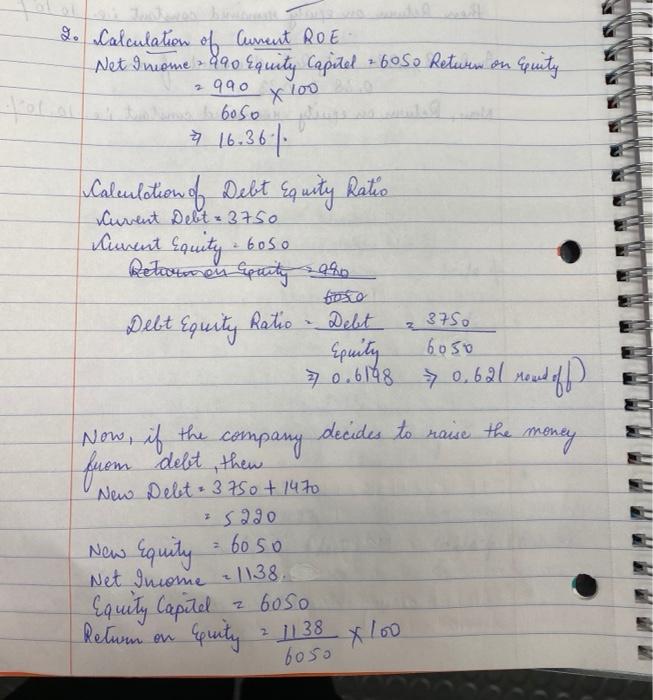 2. Calculation of Current ROE
Net Income = 990 Equity Capital = 6050 Return on Equity
= 990 × 100
6050
⇒ 16.36%.
Calculation of Debt Equity Ratio
Current Debt = 3750
Current Equity = 6050
Return on Equity = 990
6050
Debt Equity Ratio = Debt = 3750
Equity 6050
⇒ 0.6198 ⇒ 0.62 (round off)
Now, if the company decides to raise the money
from debt, then
New Debt = 3750 + 1470
= 5220
New Equity = 6050
Net Income = 1138.
Equity Capital = 6050
Return on Equity = 1138 × 100
6050